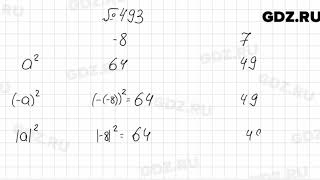 GDZ.RU
№ 493
-8 7
a² 64 49
(-a)² (-(-8))² = 64 49
|a|² |-8|² = 64 4